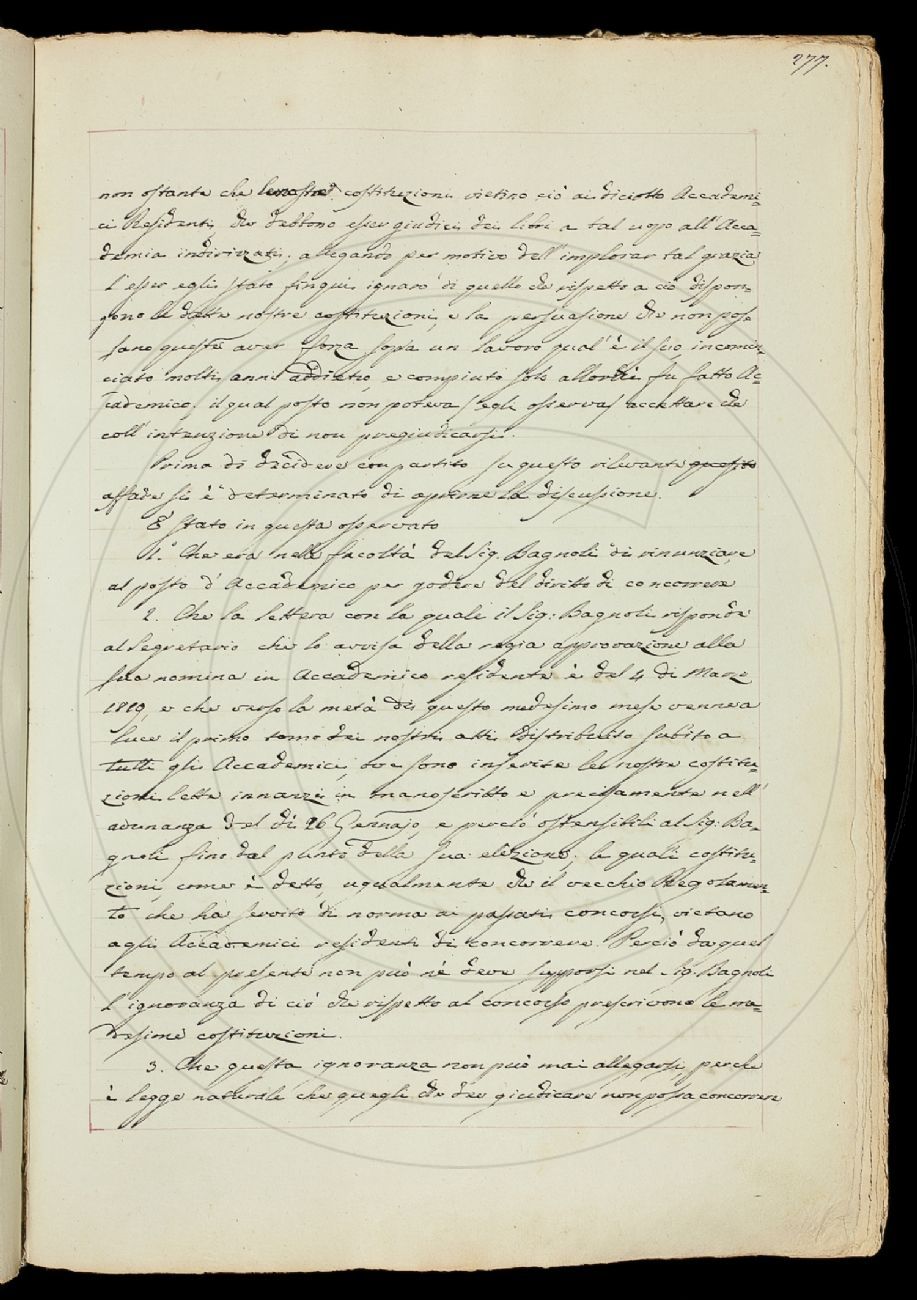 277.
non ostante che le nostre costituzioni vietino ciò ai diciotto Accademi=
ci Residenti, che debbono esser giudici dei libri a tal uopo all'Acca=
demia indirizzati; allegando per motivo dell'implorar tal grazia
l'esser egli stato finqui ignaro di quello che rispetto a ciò dispon=
gono le dette nostre costituzioni, e la persuasione che non pos=
sano queste aver forza sopra un lavoro qual'è il suo incomin=
ciato molti anni addietro, e compiuto solo allorchè fu fatto Ac=
cademico; il qual posto non poteva (egli osserva) accettare che
coll'intenzione di non pregiudicarsi.
Prima di decidere con partito su questo rilevante quesito
affare si è determinato di aprirne la discussione.
E' stato in questa osservato
1.° Che era nella facoltà del Sig. Bagnoli di rinunziare
al posto d'Accademico per godere del diritto di concorrere
2. Che la lettera con la quale il Sig: Bagnoli risponde
al Segretario che lo avvisa della regia approvazione alla
sua nomina in Accademico residente è del 4 di Marzo
1819, e che verso la metà di questo medesimo mese venne a
luce il primo tomo dei nostri atti distribuito subito a
tutti gli Accademici, ove sono inserite le nostre costitu=
zioni lette innanzi in manoscritto e precisamente nell'
adunanza del dì 26 Gennajo, e perciò ostensibili al Sig: Ba=
gnoli fino dal punto della sua elezione; le quali costitu=
zioni, come è detto, ugualmente che il vecchio Regolamen=
to che ha servito di norma ai passati concorsi, vietano
agli Accademici residenti di concorrere. Perciò da quel
tempo al presente non può nè deve supporsi nel Sig. Bagnoli
l'ignoranza di ciò che rispetto al concorso prescrivono le me=
desime costituzioni.
3. Che questa ignoranza non può mai allegarsi, perchè
è legge naturale che quegli che dee giudicare non possa concorrere